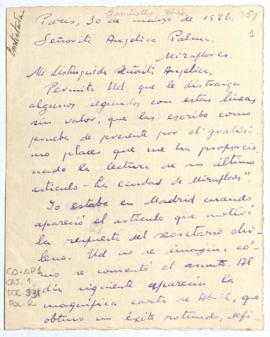 Contestada
359
1
París, 30 de marzo de 1926.
Señorita Angélica Palma.
Miraflores.
Mi distinguida Señorita Angélica,
Permita Ud que le distraiga
algunos segundos con estas líneas
sin valor, que las escribo como
prueba de presente por el gratísimo
placer que me ha proporcio
nado la lectura de un último
artículo "La ciudad de Miraflores"
Yo estaba en Madrid cuando
apareció el artículo que motivó
la respuesta del secretario chi
leno. Ud no se imagina có
mo se comentó el asunto. Al
día siguiente aparecía la
magnífica carta de Abril, que
obtuvo un éxito rotundo, defi
CO-AP1
CAJ. 1
DOC 331
FOL. 2